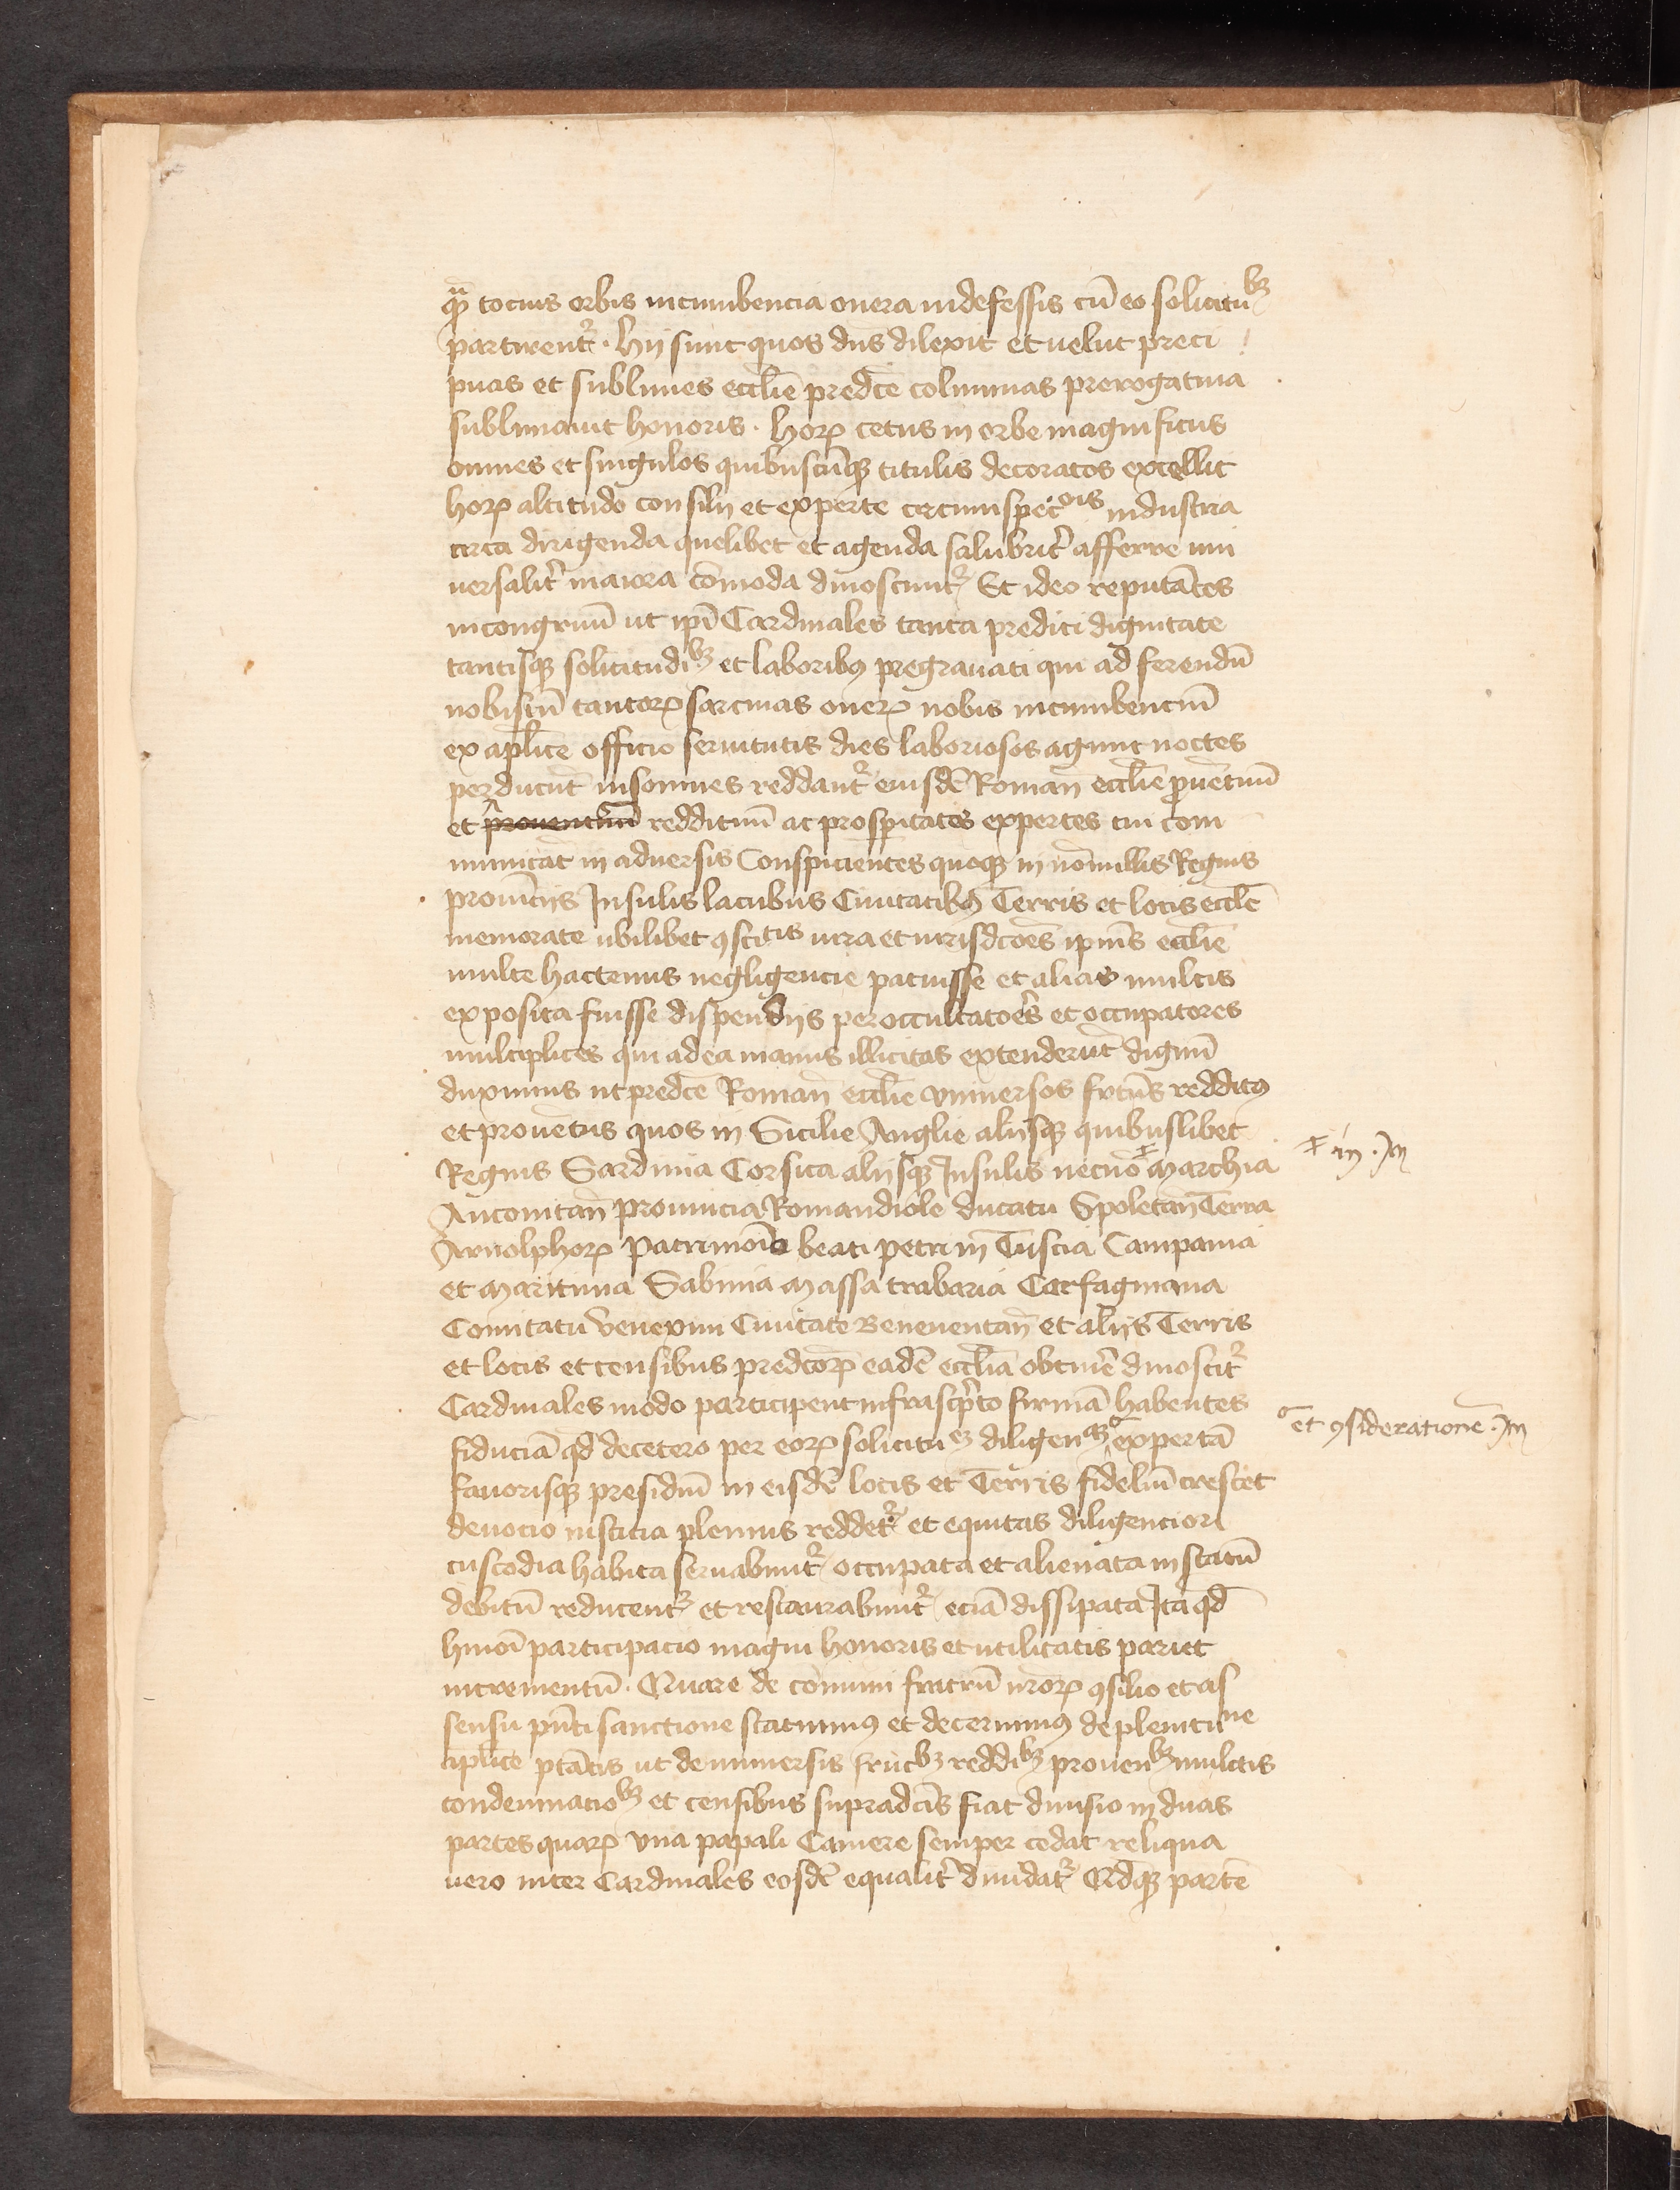 qᷓ tocius orbis incumbencia onera indefessis cū eo solicituᵇꝫ
partirentr̃ . Hij sunt quos dn̄s dilexit et velut preci
puas et sublimes eccl̄ie pred̄ce columnas prerogatiua
sublimauit honoris . Horꝝ cetus in orbe magnificus
omnes et singulos quibuscūqꝫ titulis decoratos excellit
horꝝ altitudo consilij et experte circumspecc̄ois industria
circa dirigenda quelibet et agenda salubrit̄ afferre uni
uersalit̄ maiora cōmoda dinoscunt̄ Et ideo reputātes
incongruū ut ip̄i Cardinales tanta prediti dignitate
tantisqꝫ solicitudiᵇꝫ et laboribꝰ pregrauati qui ad ferendū
nobiscū tantorꝝ sarcinas onerꝝ nobis incumbenciū
ex apl̄ice officio seruitutis dies laboriosos agunt noctes
perducūt insomnes reddant̄ eiusdē Roman̄ eccl̄ie ꝓuētuū
et prouentuū reddituū ac prosperitatis expertes cui com
municāt in aduersis Conspicientes quoqꝫ in nōnullis Regnis
prouīcijs Insulis lacubus Ciuitatibꝰ Terris et locis eccl̄e
memorate ubilibet ꝯsctis iura et iurisdc̄ōes ipiūs eccl̄ie
multe hactenus negligencie patuisse et alias multis
exposita fuisse dispendijs per occultatoēs et occupatores
multiplices qui ad ea manus illicitas extenderūt dignū
duximus ut pred̄ce Roman̄ eccl̄ie vniuersos frctūs redditꝰ
et prouētus quos in Sicilie Anglie alijsqꝫ quibuslibet
Regnis Sardinia Corsica alijsqꝫ Insulis necnō Marchia
Anconitan̄ prouincia Romandiole ducatu Spoletan̄ Terra
Arnolphorꝝ Patrimoīo beati petri in Tuscia Campania
et Maritima Sabinia Massa trabaria Carfagniana
Comitatu Venexini Ciuitate Beneuentan̄ et alijs Terris
et locis et censibus predc̄orꝝ eadē eccl̄ia obtinē dinoscit̄
Cardinales modo participent infrascp̄to firmā habentes
fiduciā qd̄ decetero per eorꝝ solicituᵉꝫ diligenᵃꝫ expertā
fauorisqꝫ presidiū in eisdē locis et Terris fideliū crescet
deuocio iusticia plenius reddet̄ et equitas diligenciori
custodia habita seruabunt̄ occupata et alienata in statū
debitū reducent̄ et restaurabunt̄ eciā dissipata Ita qd̄
hmōi participacio magni honoris et utilitatis pariet
incrementū . Quare de cōmuni fratrū nr̄orꝝ ꝯsilio et as
sensu pn̄ti sanctione statuimꝰ et decernimꝰ de plenituⁿᵉ
aplice ptātis ut de uniuersis fructᵇꝫ reddiᵇꝫ prouenᵇꝫ mulctis
condemnacioᵇꝫ et censibus supradc̄is fiat diuisio in duas
partes quarꝝ vna papali Camere semper cedat reliqua
uero inter Cardinales eosdē equalit̄ diuidat̄ Qd̄qꝫ partē
in .)m
et ꝯsideratione .)m